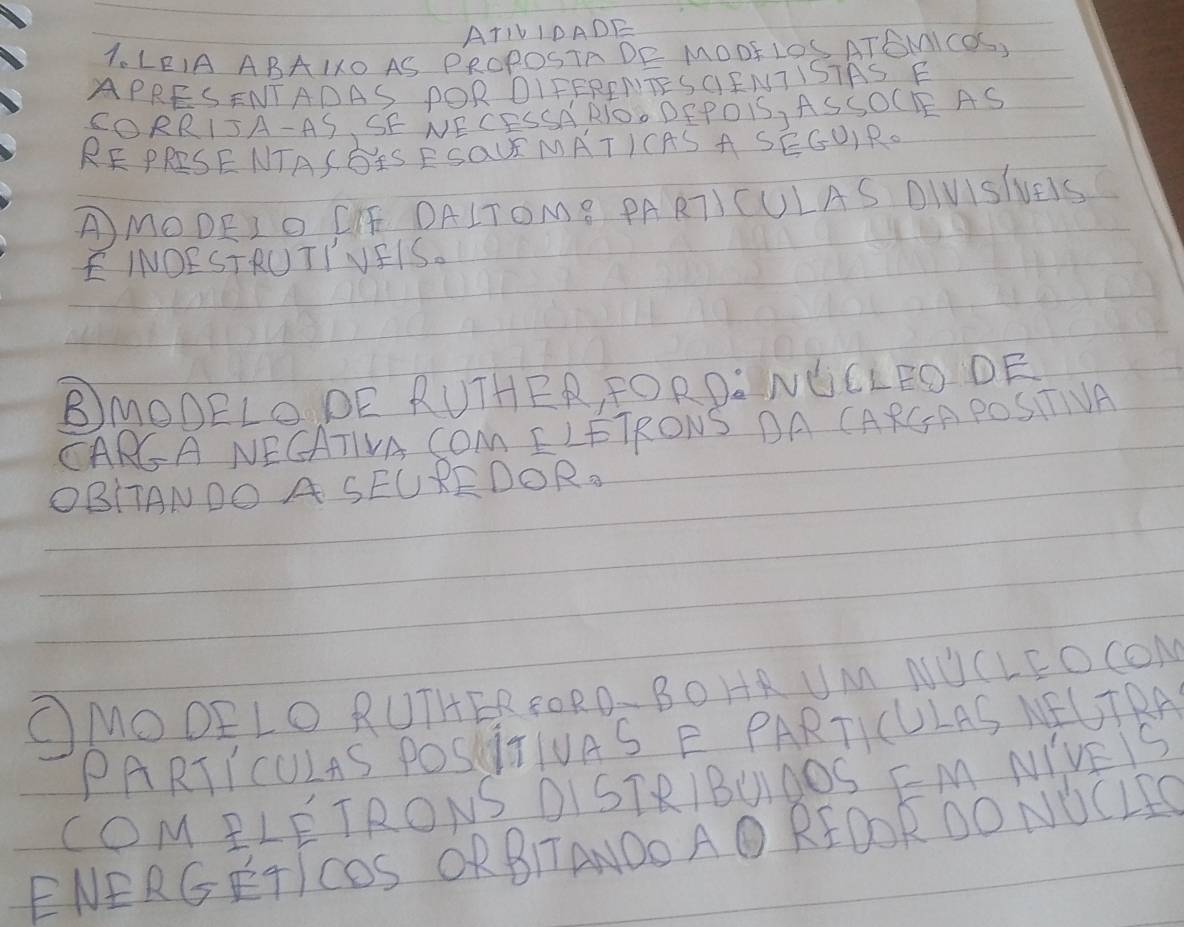 ATIVIDADE
1. LEIA ABAIXO AS PROPOSTA DE MODELOS ATÔMICOS,
APRESENTADAS POR DIFERENTES CIENTISTAS E
CORRIJA-AS, SE NECESSÁRIO. DEPOIS, ASSOCIE AS
REPRESENTAÇÕES ESQUEMÁTICAS A SEGUIR.
A) MODELO DE DALTOM: PARTICULAS DIVISÍVEIS
E INDESTRUTÍVEIS.
B) MODELO DE RUTHER,FORD: NÚCLEO DE
CARGA NEGATIVA COM ELETRONS DA CARGA POSITIVA
OBITANDO A SEU REDOR.
C) MODELO RUTHERFORD-BOHR UM NÚCLEO COM
PARTÍCULAS POSITIVAS E PARTICULAS NEUTRAS
COM ELÉTRONS DISTRIBUIDOS EM NÍVEIS
ENERGÉTICOS ORBITANDO AO REDOR DO NÚCLEO